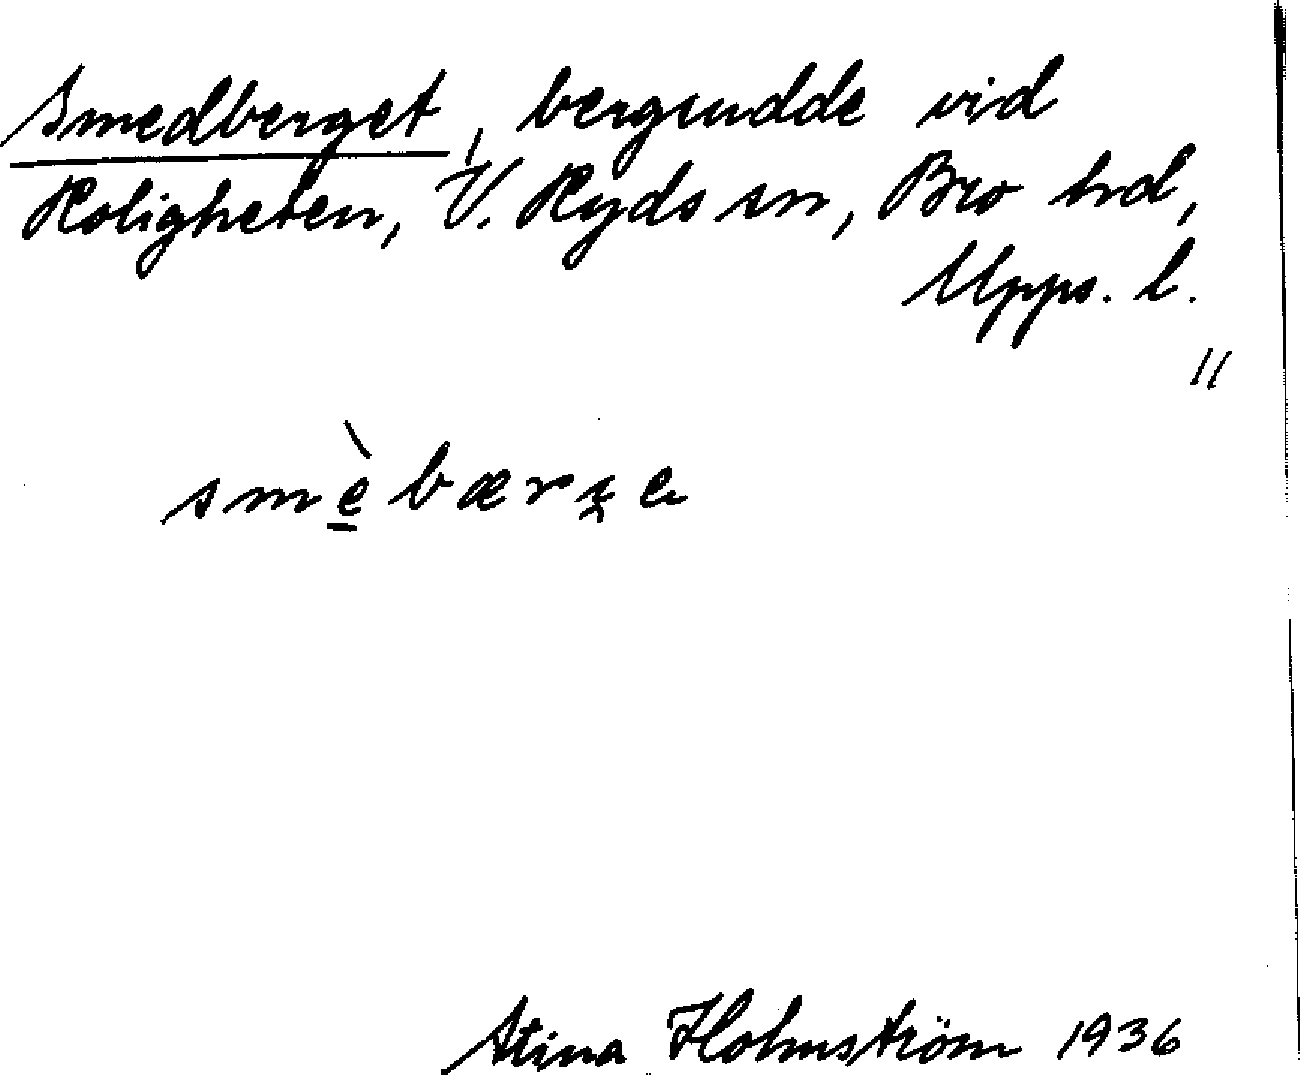 Smedberget, bergudde vid
Roligheten, V. Ryds sn, Bro hd,
Upps. l.
"
Stina Holmström 1936